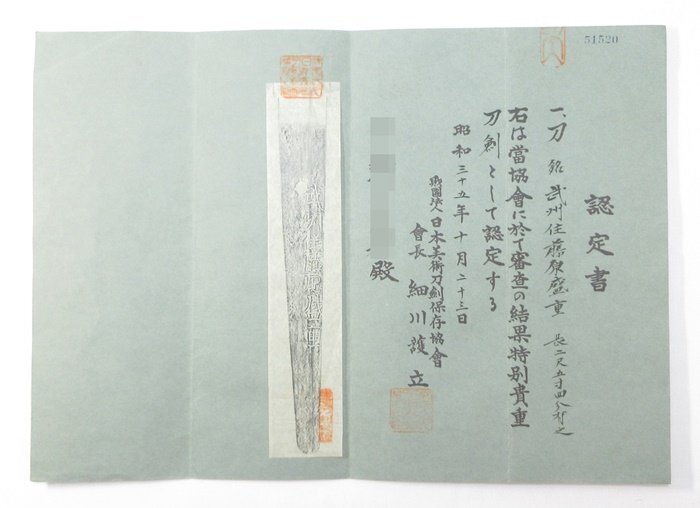 51520
認定書
一、刀 銘 武州住藤原盛重 長二尺五寸四分有之
右は當協會に於て審査の結果特別貴重
刀劍として認定する
昭和三十五年十月二十三日
財團法人日本美術刀劍保存協會
會長 細川護立
殿